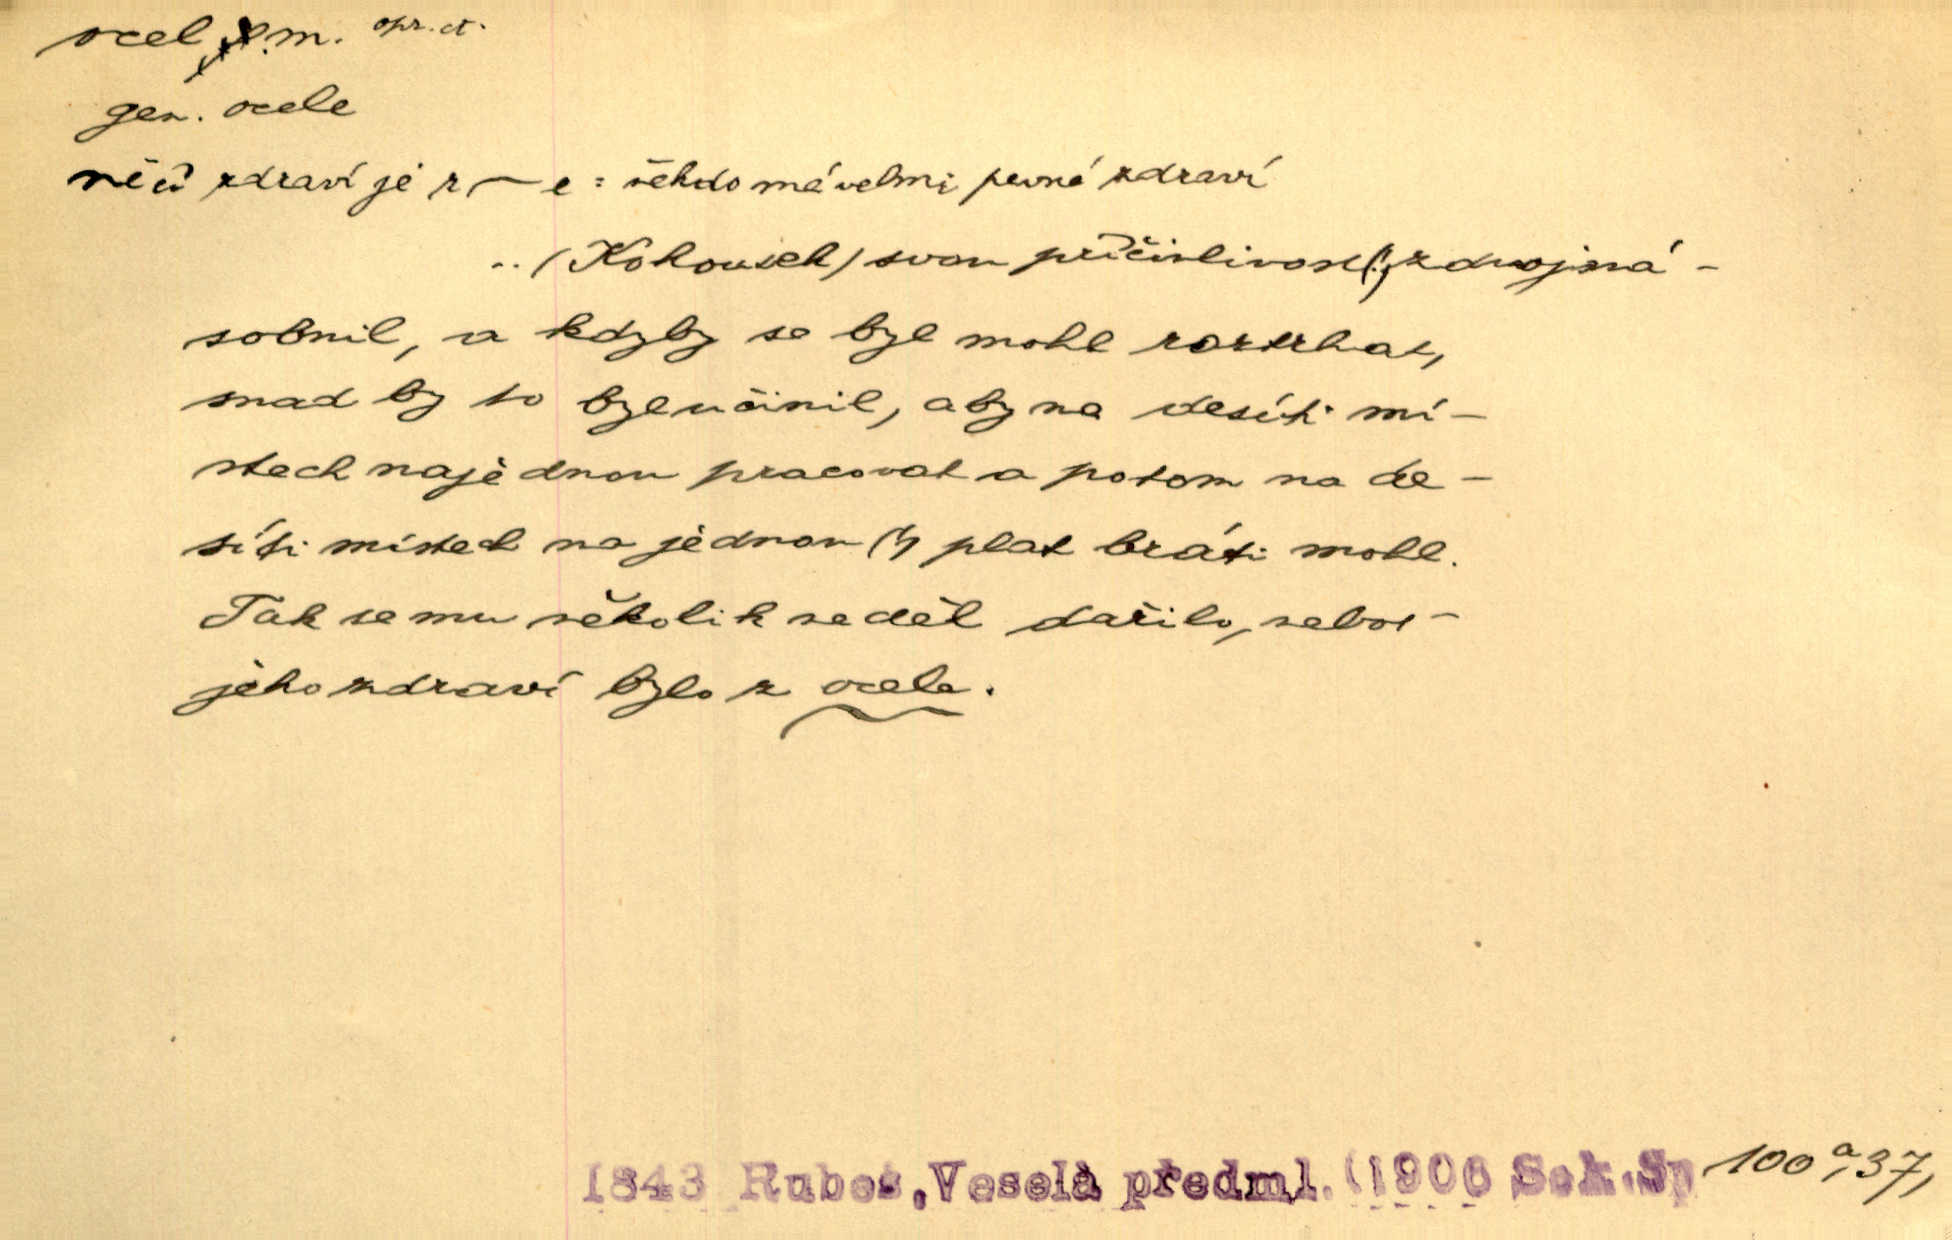 ocel m. opr. ct.
gen. ocele
něčí zdraví je z — e = někdo má velmi pevné zdraví
.. (Kohoutek) svou přičinlivost (!) zdvojná-
sobnil, a kdyby se byl mohl roztrhat,
snad by to byl učinil, aby na desíti mí-
stech najednou pracovat a potom na de-
síti místech na jednou (!) plat bráti mohl.
Tak se mu několik neděl dařilo, nebot
jeho zdraví bylo z ocele.
1843 Rubeš, Veselà předml. (1906 Seb. Sp 100 a, 37,